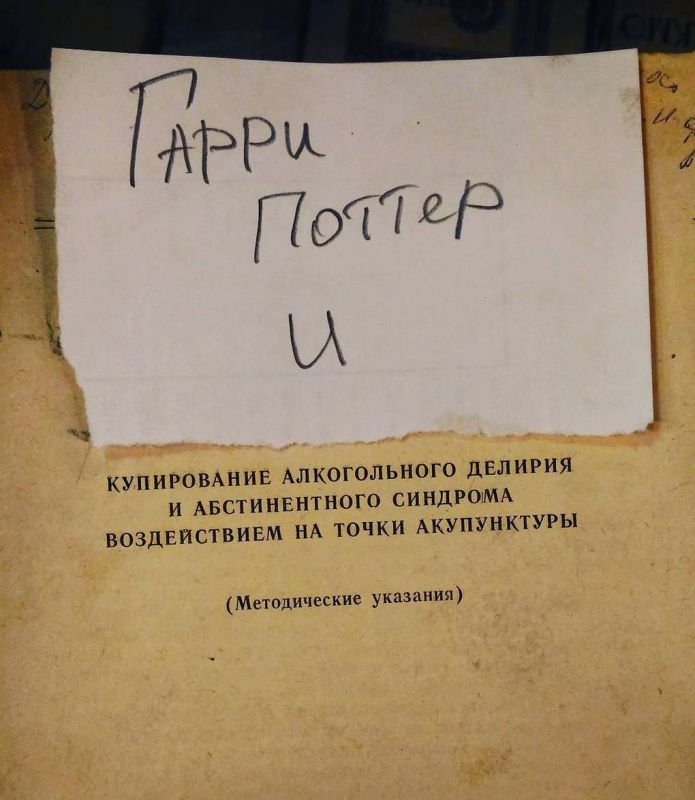 Гарри
Поттер
и
КУПИРОВАНИЕ АЛКОГОЛЬНОГО ДЕЛИРИЯ
И АБСТИНЕНТНОГО СИНДРОМА
ВОЗДЕЙСТВИЕМ НА ТОЧКИ АКУПУНКТУРЫ
(Методические указания)